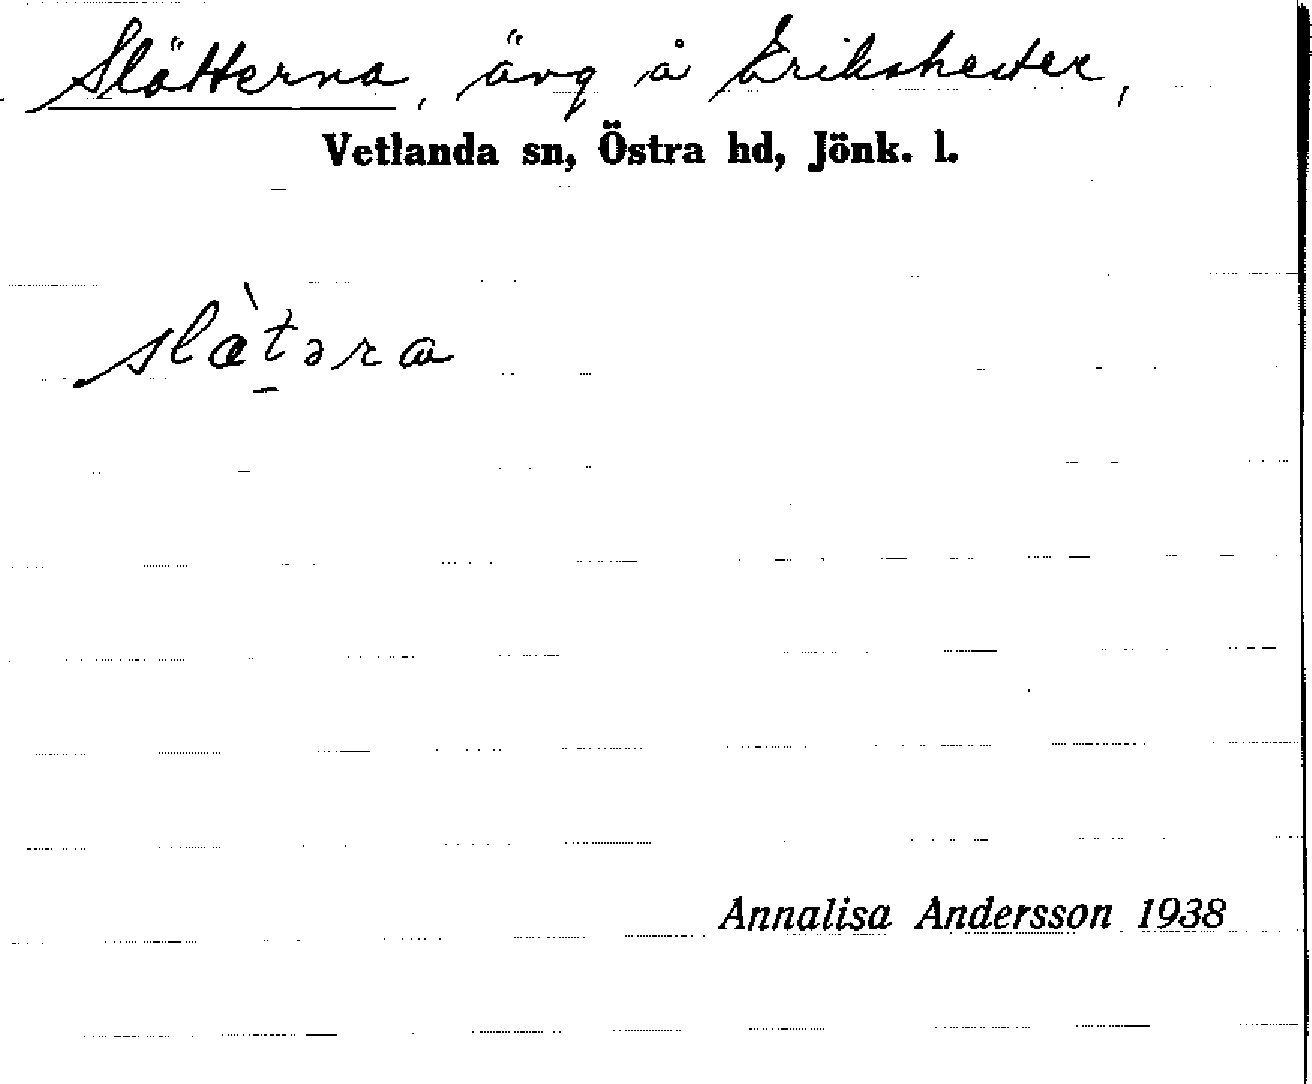 Slätterna, äng å Erikshester,
Vetlanda sn, Östra hd, Jönk. l.
slæ̀t̠əra
Annalisa Andersson 1938